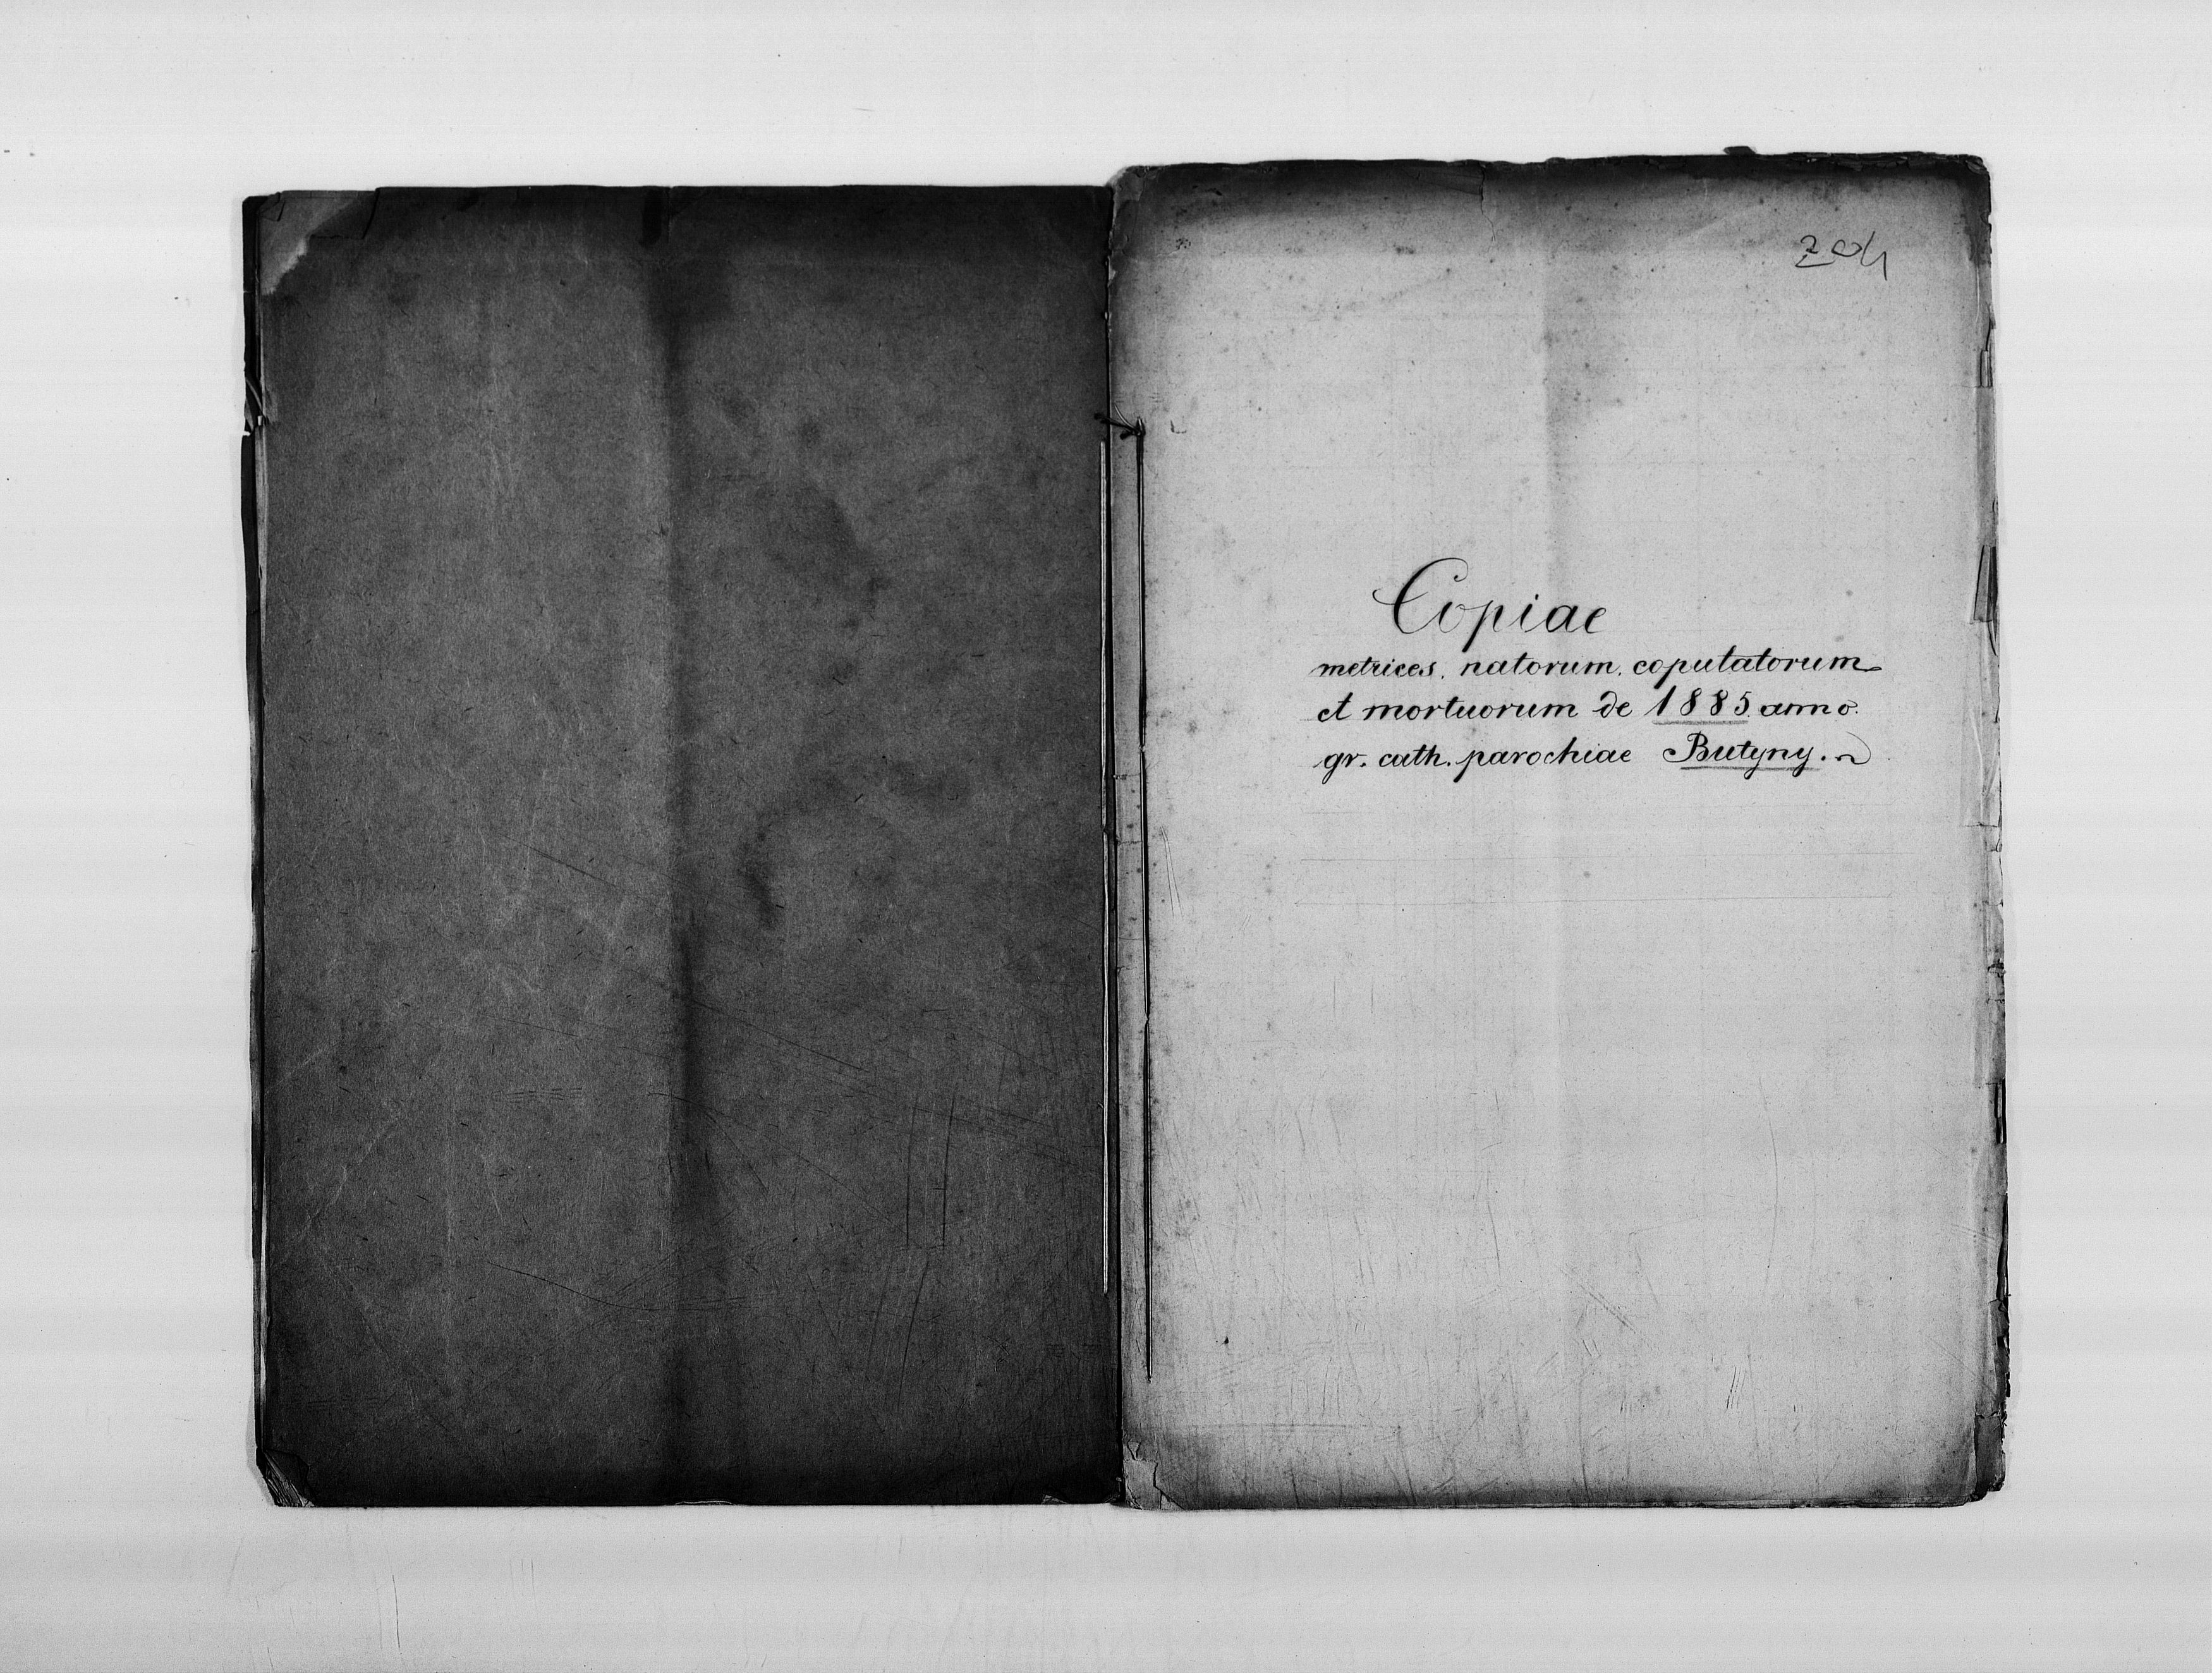 204
Copiae
metrices. natorum. coputatorum
et mortuorum de 1885 anno.
gr. cath. parochiae Butyny.